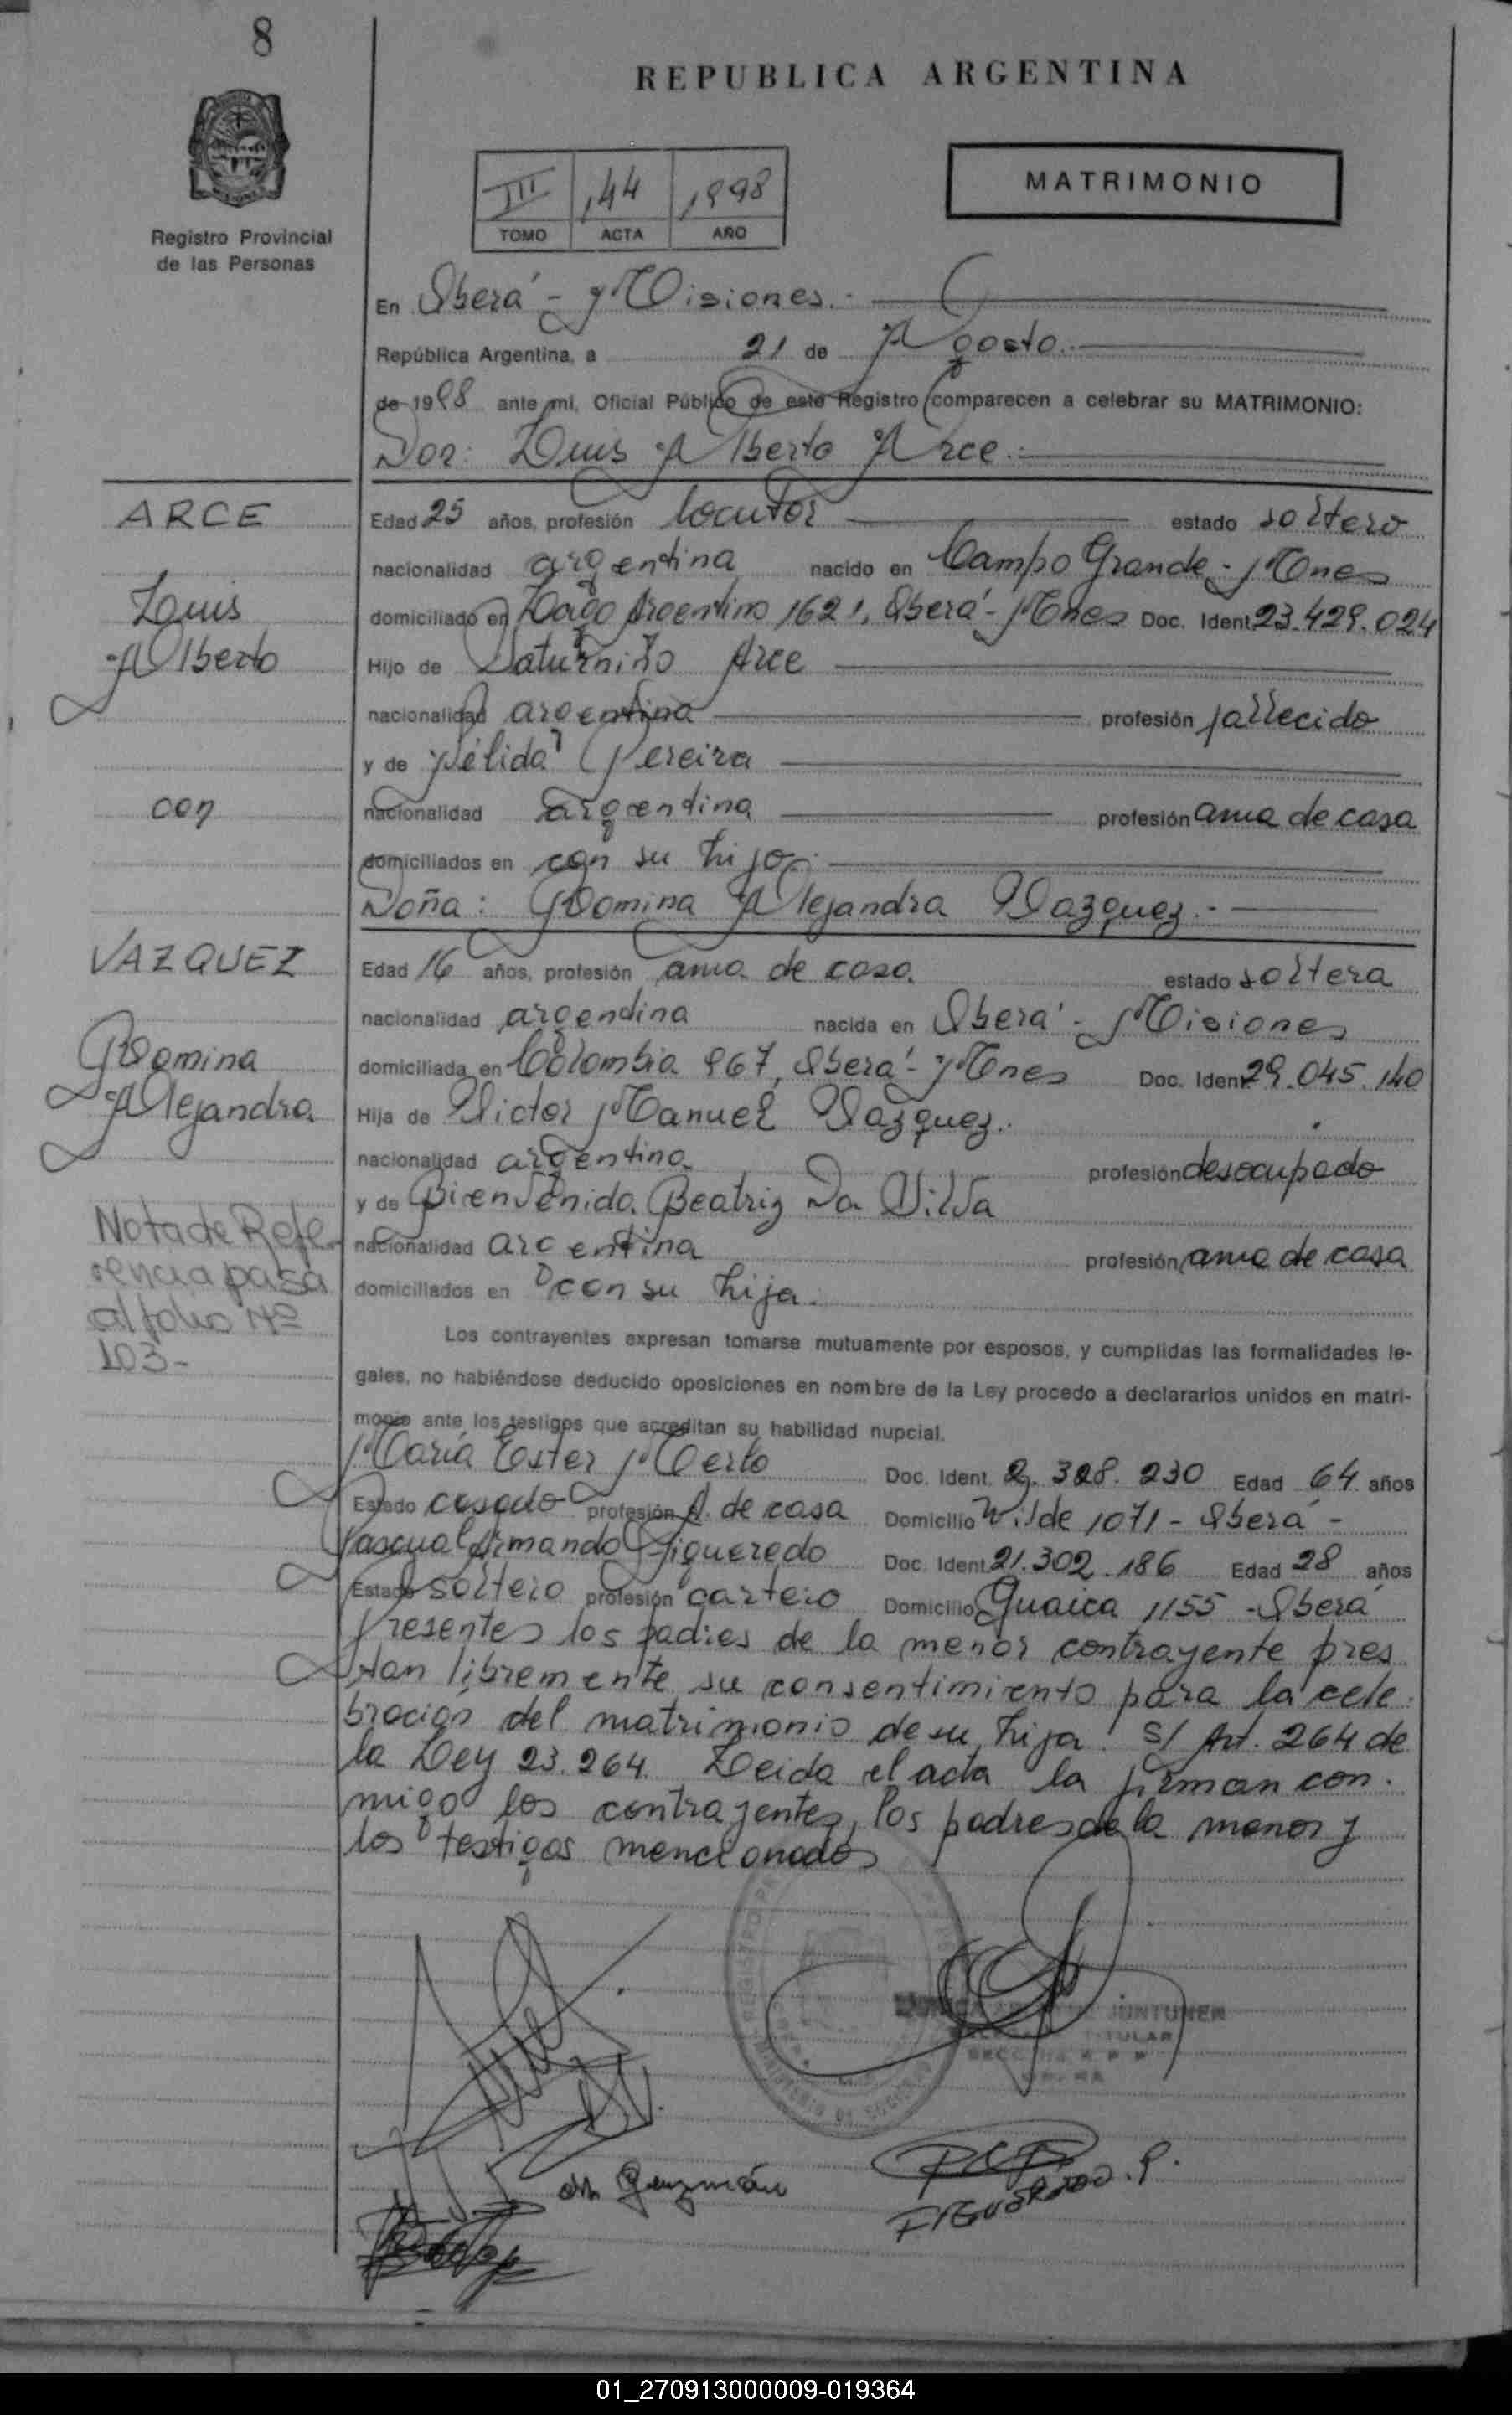 8
REPUBLICA ARGENTINA
Registro Provincial
de las Personas
III 144 1998
TOMO ACTA AÑO
MATRIMONIO
En Oberá - Misiones.-
República Argentina, a 21 de Agosto.-
de 1998 ante mi, Oficial Público de este Registro comparecen a celebrar su MATRIMONIO:
Don: Luis Alberto Arce.-
ARCE
Luis
Alberto
con
VAZQUEZ
Romina
Alejandra
Nota de Refe-
rencia pasa
al folio Nº
103-
Edad 25 años, profesión locutor estado soltero
nacionalidad argentina nacido en Campo Grande - Mnes
domiciliado en Lago Argentino 1621, Oberá - Mnes Doc. Ident. 23.429.024
Hijo de Saturnino Arce
nacionalidad argentina profesión fallecido
y de Nélida Pereira
nacionalidad argentina profesión ama de casa
domiciliados en con su hijo.-
Doña: Romina Alejandra Vazquez.-
Edad 16 años, profesión ama de casa. estado soltera
nacionalidad argentina nacida en Oberá - Misiones
domiciliada en Colombia 967, Oberá - Mnes Doc. Ident. 29.045.140
Hija de Victor Manuel Vazquez.
nacionalidad argentina profesión desocupado
y de Bienvenida Beatriz Da Silva
nacionalidad argentina profesión ama de casa
domiciliados en con su hija.
Los contrayentes expresan tomarse mutuamente por esposos, y cumplidas las formalidades le-
gales, no habiéndose deducido oposiciones en nombre de la Ley procedo a declararlos unidos en matri-
monio ante los testigos que acreditan su habilidad nupcial.
María Ester Merlo Doc. Ident. 2.328.230 Edad 64 años
Estado casado profesión A. de casa Domicilio Wilde 1071 - Oberá -
Pascual Armando Figueredo Doc. Ident. 21.302.186 Edad 28 años
Estado soltero profesión cartero Domicilio Guaica 1155 - Oberá
Presentes los padres de la menor contrayente pres
tan libremente su consentimiento para la cele
bración del matrimonio de su hija. S/ Art. 264 de
la Ley 23.264. Leida el acta la firman con.
migo los contrayentes, los padres de la menor y
los testigos mencionados
JUNTUNEN
TITULAR
FIGUEREDO. P.
01_270913000009-019364